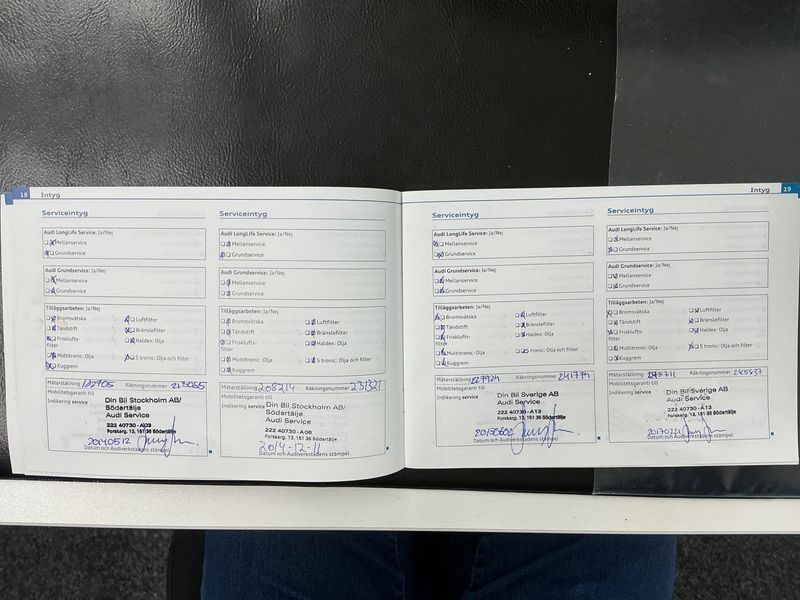 18 Intyg
Serviceintyg
Audi LongLife Service: Ja/Nej
Mellanservice
Grundservice
Audi Grundservice: Ja/Nej
Mellanservice
Grundservice
Tilläggsarbeten: Ja/Nej
Bromsvätska
Luftfilter
Tändstift
Bränslefilter
Friskluftsfilter
Haldex: Olja
Multitronic: Olja
S tronic: Olja och filter
Kuggrem
Mätarställning Räkningsnummer 213055
Mobilitetsgaranti till
Indikering service
Din Bil Stockholm AB/
Södertälje
Audi Service
222 40730 - A03
Forskarg. 13, 151 36 Södertälje
20140512
Datum och Audiverkstadens stämpel
Serviceintyg
Audi LongLife Service: Ja/Nej
Mellanservice
Grundservice
Audi Grundservice: Ja/Nej
Mellanservice
Grundservice
Tilläggsarbeten: Ja/Nej
Bromsvätska
Luftfilter
Tändstift
Bränslefilter
Friskluftsfilter
Haldex: Olja
Multitronic: Olja
S tronic: Olja och filter
Kuggrem
Mätarställning 208214 Räkningsnummer 231321
Mobilitetsgaranti till
Indikering service
Din Bil Stockholm AB/
Södertälje
Audi Service
222 40730 - A06
Forskarg. 13, 151 36 Södertälje
2014-12-11
Datum och Audiverkstadens stämpel
Intyg 19
Serviceintyg
Audi LongLife Service: Ja/Nej
Mellanservice
Grundservice
Audi Grundservice: Ja/Nej
Mellanservice
Grundservice
Tilläggsarbeten: Ja/Nej
Bromsvätska
Luftfilter
Tändstift
Bränslefilter
Friskluftsfilter
Haldex: Olja
Multitronic: Olja
S tronic: Olja och filter
Kuggrem
Mätarställning Räkningsnummer
Mobilitetsgaranti till
Indikering service
Din Bil Sverige AB
Audi Service
222 40730 - A13
Forskarg. 13, 151 36 Södertälje
Datum och Audiverkstadens stämpel
Serviceintyg
Audi LongLife Service: Ja/Nej
Mellanservice
Grundservice
Audi Grundservice: Ja/Nej
Mellanservice
Grundservice
Tilläggsarbeten: Ja/Nej
Bromsvätska
Luftfilter
Tändstift
Bränslefilter
Friskluftsfilter
Haldex: Olja
Multitronic: Olja
S tronic: Olja och filter
Kuggrem
Mätarställning 248711 Räkningsnummer
Mobilitetsgaranti till
Indikering service
Din Bil Sverige AB
Audi Service
222 40730 - A13
Forskarg. 13, 151 36 Södertälje
20170221
Datum och Audiverkstadens stämpel